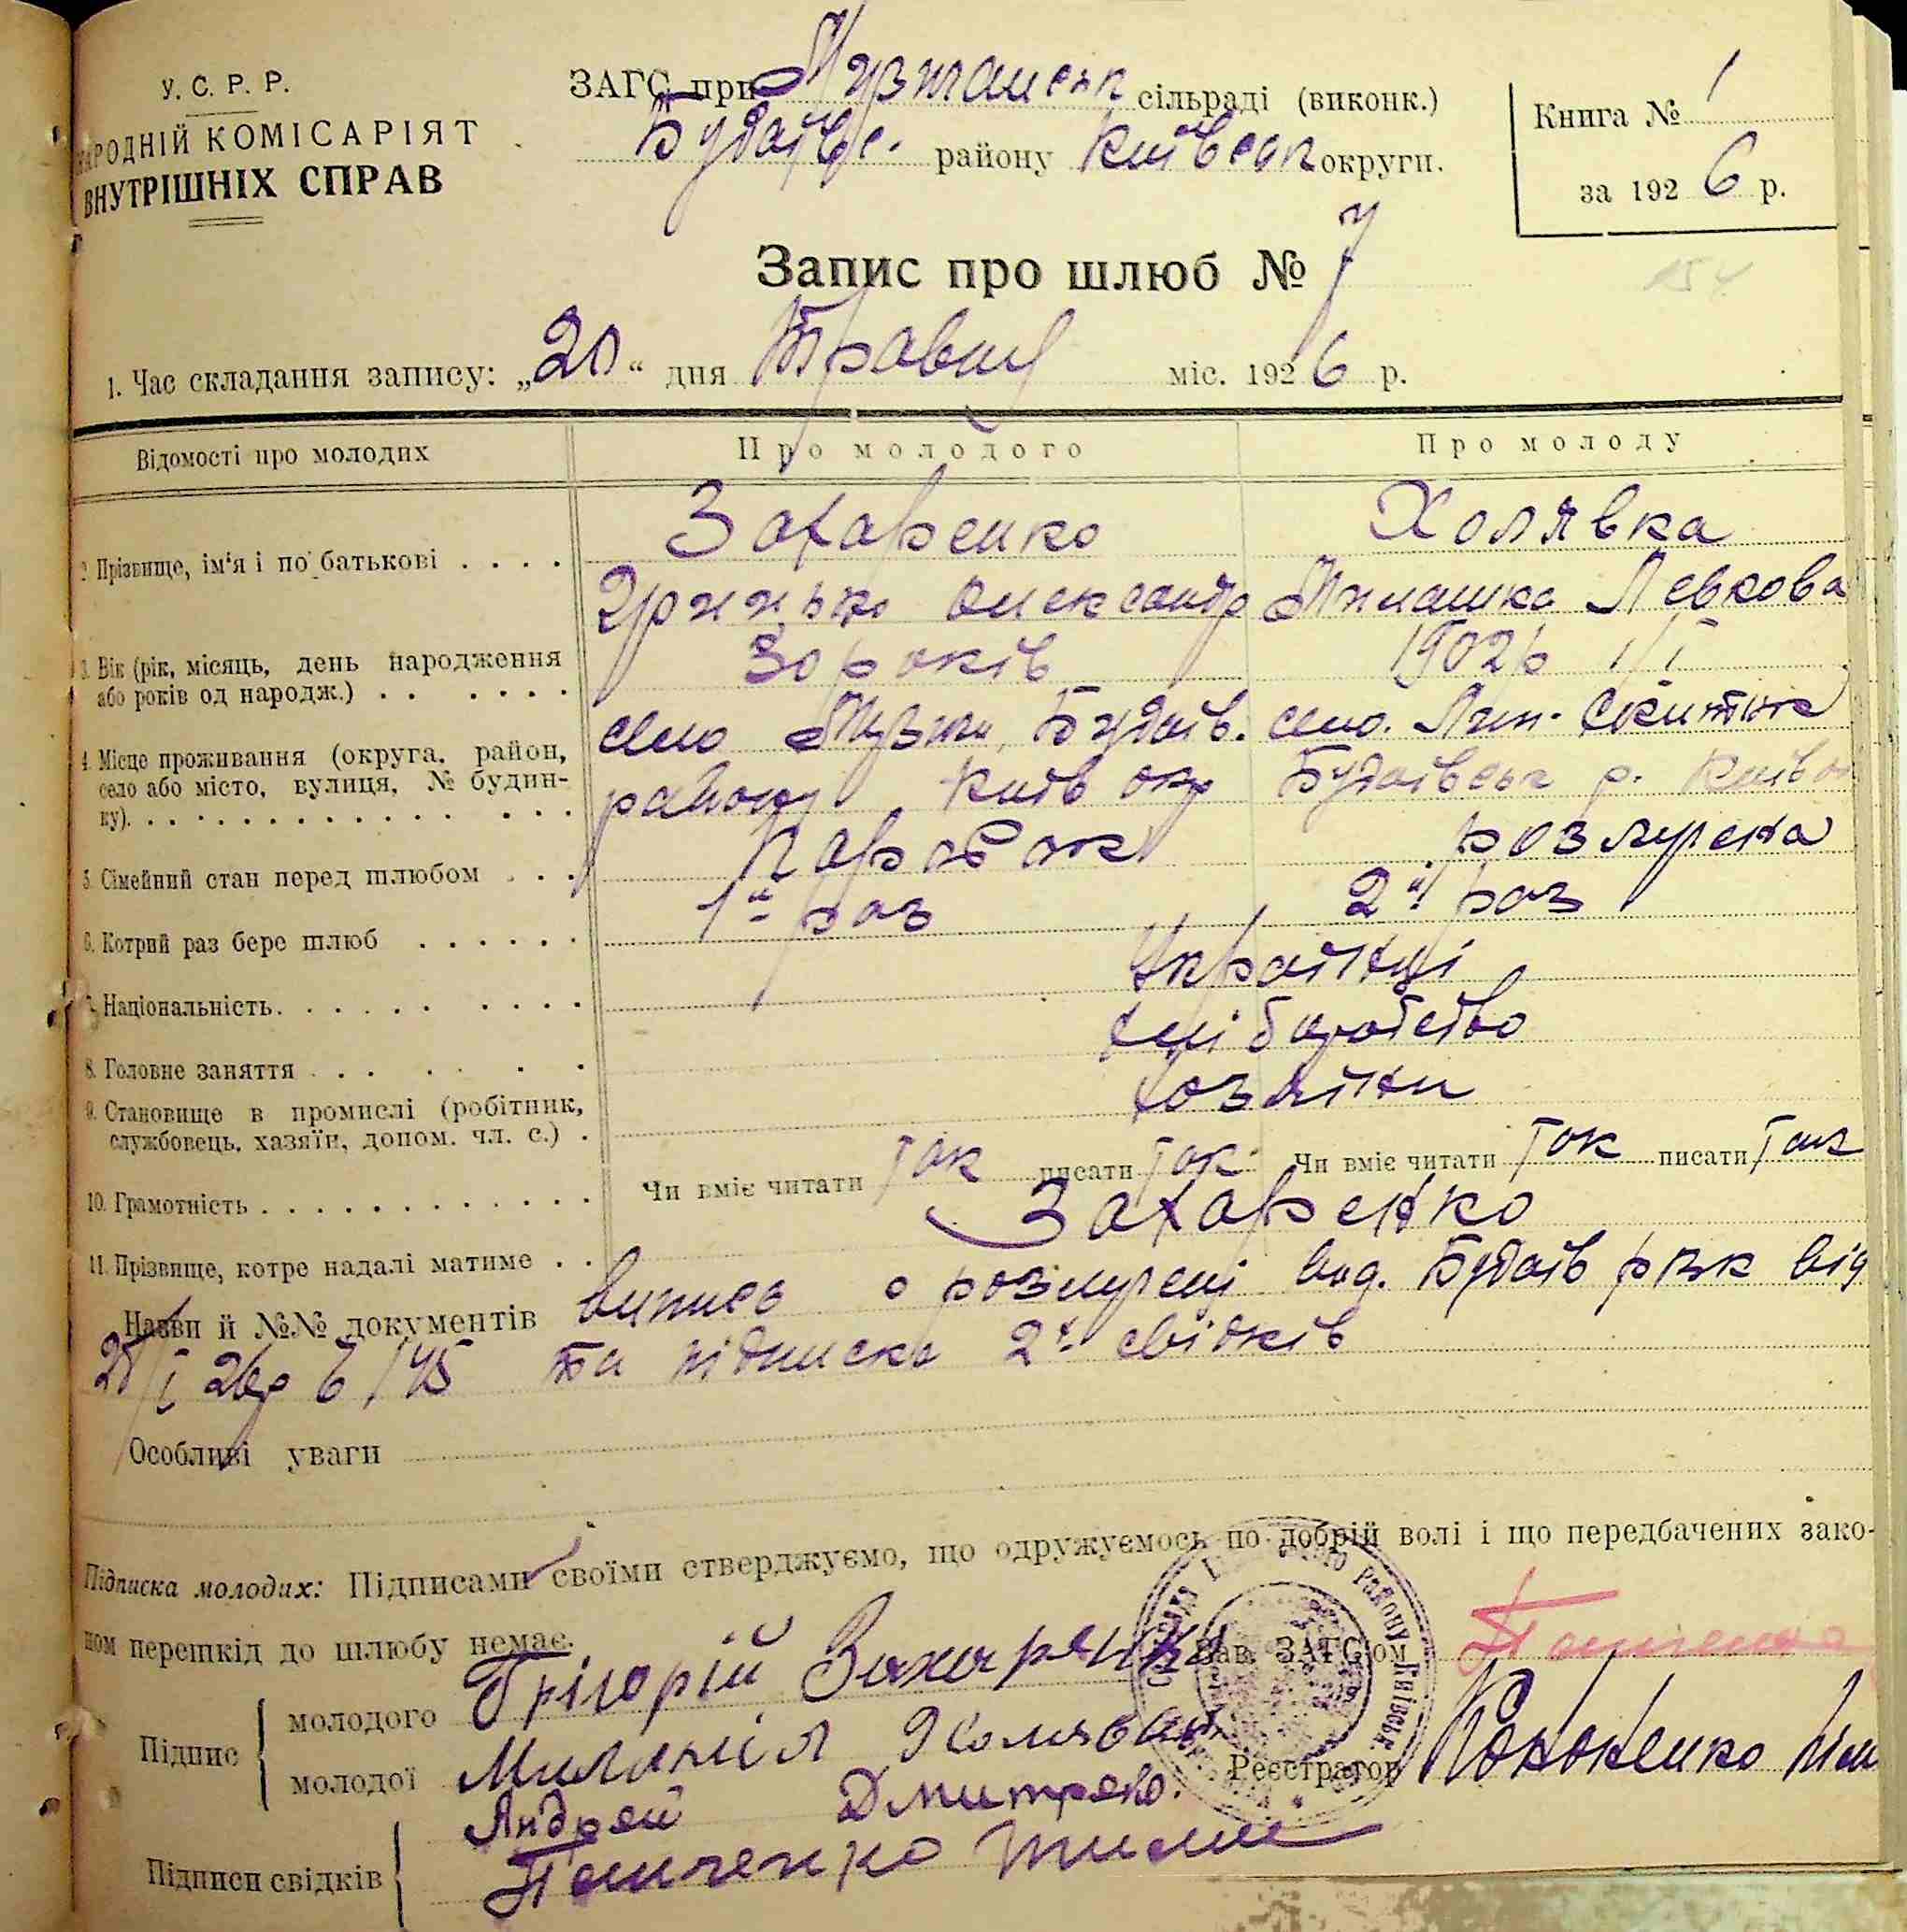 У. С. Р. Р.
НАРОДНІЙ КОМІСАРІЯТ
ВНУТРІШНІХ СПРАВ
ЗАГС при Музичанськ сільраді (виконк.)
Будаївс. району Київськ округи.
Книга № 1
за 1926 р.
Запис про шлюб № 7
154
1. Час складання запису: „20“ дня Травня міс. 1926 р.
Відомості про молодих Про молодого Про молоду
2. Прізвище, ім'я і по батькові . . . . Захаренко Холявка
Гринько Олександр Милашка Левкова
3. Вік (рік, місяць, день народження або років од народж.) . . . . . . 30 років 1902 р 1/I
4. Місце проживання (округа, район, село або місто, вулиця, № будинку). село Музичі, Будаїв. село. Лич-Скитик
району Київ окр Будаївськ р. Київ ок
5. Сімейний стан перед шлюбом . . . Парубок розлучена
6. Котрий раз бере шлюб . . . . . . 1й раз 2й раз
7. Національність. . . . . . . . . Українці
8. Головне заняття . . . . . . хліборобство
9. Становище в промислі (робітник, службовець, хазяїн, допом. чл. с.) . хозяїни
10. Грамотність . . . . . . . . . . . . Чи вміє читати Так писати Так Чи вміє читати Так писати Так
11. Прізвище, котре надалі матиме . . Захаренко
Назви й №№ документів випись о розлучені вид. Будаїв рвк від
28/I 26 р та підписка 2х свідків
Особливі уваги
Підписка молодих: Підписами своїми стверджуємо, що одружуємось по добрій волі і що передбачених законом перешкід до шлюбу немає.
Зав. ЗАГС'ом
Підпис молодого Грігорій Захаренко
молодої Миланія Холявка
Реєстратор Кононенко
Підписи свідків Андрей Дмитренко.